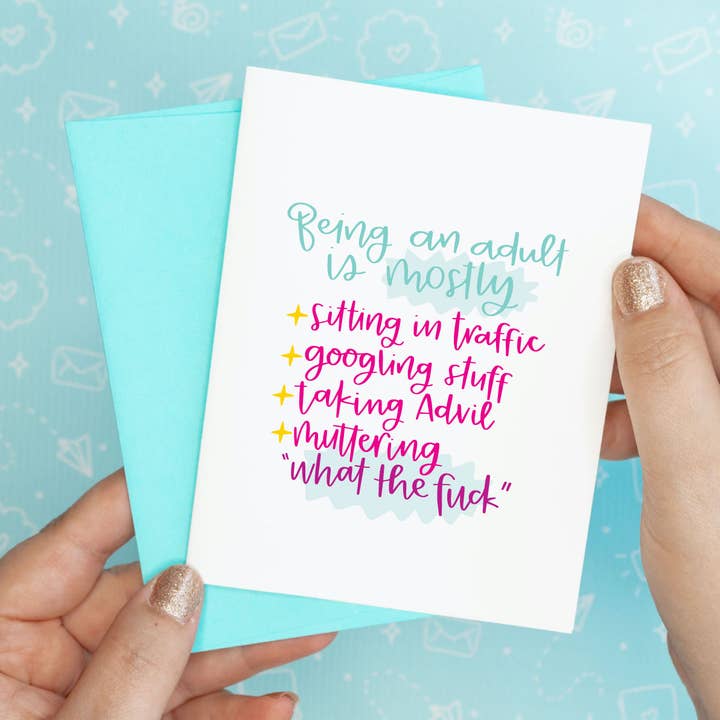 Being an adult
is mostly
sitting in traffic
googling stuff
taking Advil
muttering
"what the fuck"